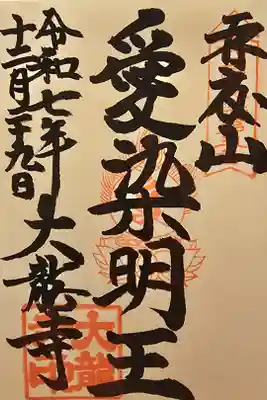 再度山
愛染明王
大龍寺
令和七年
十二月二十九日
大龍
寺印